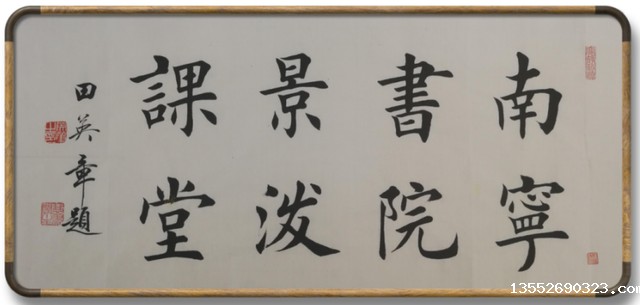 南寧
書院
景泼
課堂
田英章題
13552690323.com